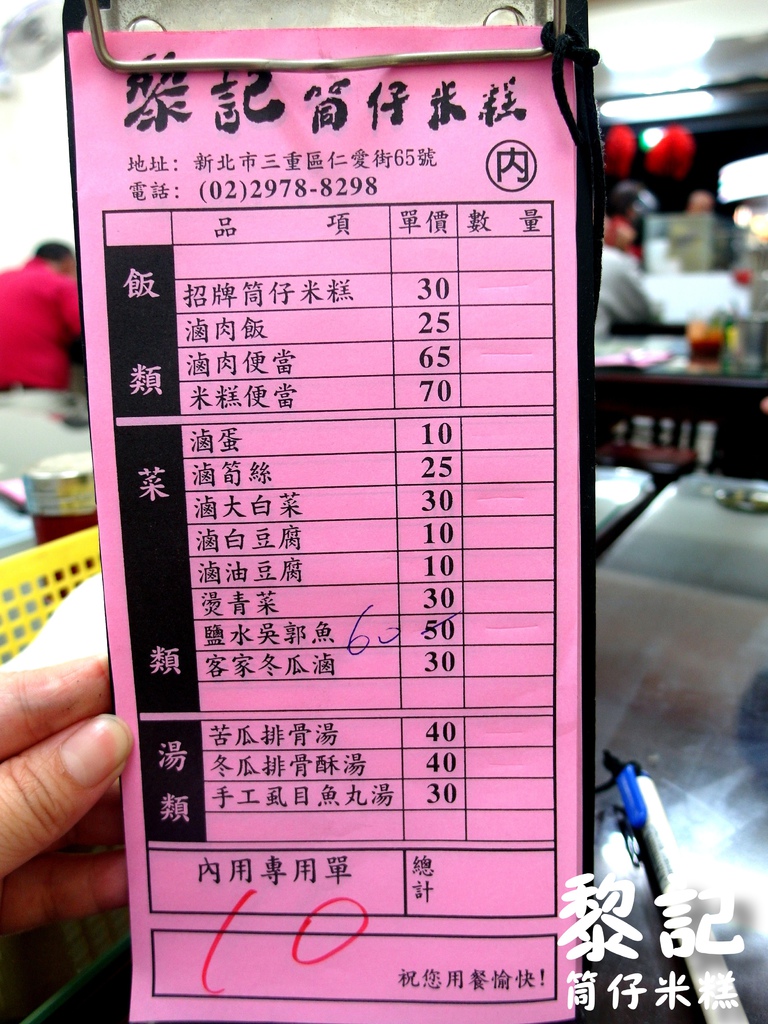 黎記 筒仔米糕
地址: 新北市三重區仁愛街65號
電話: (02)2978-8298
內
品 項 單價 數 量
飯類
招牌筒仔米糕 30
滷肉飯 25
滷肉便當 65
米糕便當 70
菜類
滷蛋 10
滷筍絲 25
滷大白菜 30
滷白豆腐 10
滷油豆腐 10
燙青菜 30
鹽水吳郭魚 60 50
客家冬瓜滷 30
湯類
苦瓜排骨湯 40
冬瓜排骨酥湯 40
手工虱目魚丸湯 30
內用專用單 總計
10
祝您用餐愉快!
黎記
筒仔米糕